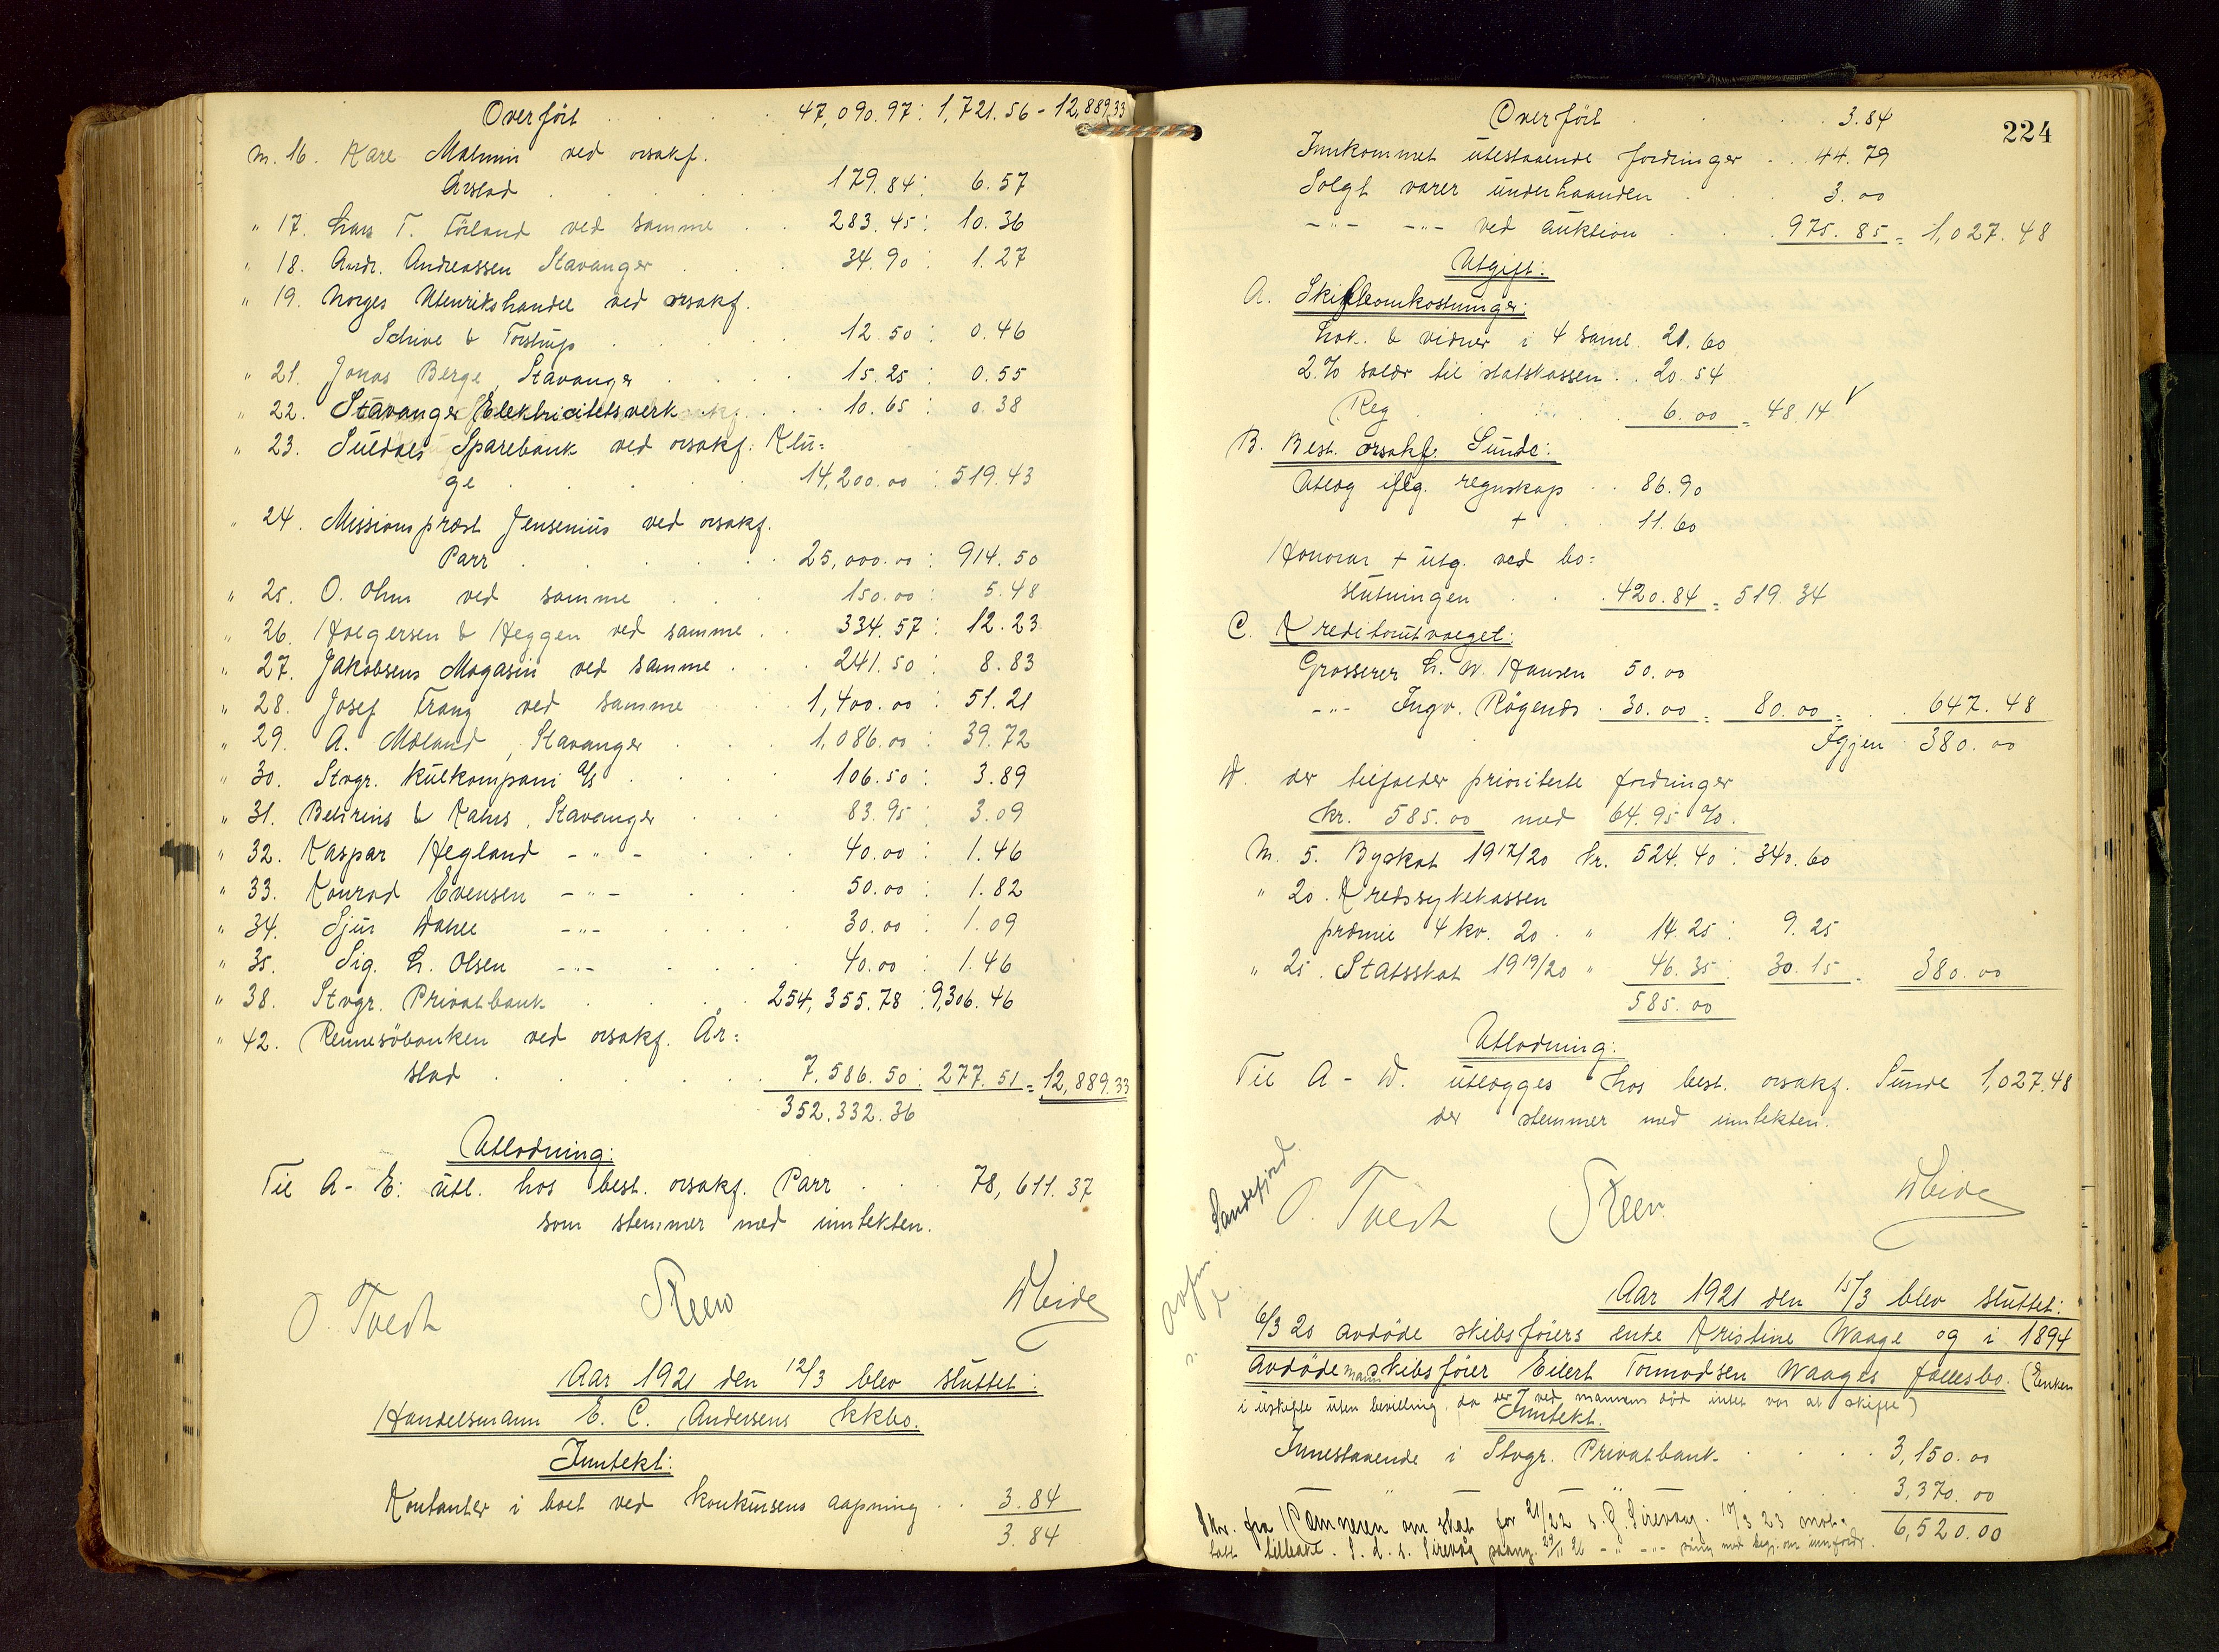 Overfört . . . . 47,090.97: 1,721.56 - 12,889.33
m. 16. Kare Malmin ved orsakf.
Arstad . . . . 179.84: 6.57
" 17. Lars T. Törland ved samme . . 283.45: 10.36
" 18. Andr. Andreassen Stavanger . . 34.90: 1.27
" 19. Norges Utenrikshandel ved orsakf.
Schive & Torstrup . . . . 12.50: 0.46
" 21. Jonas Berge, Stavanger . . . . 15.25: 0.55
" 22. Stavanger Elektricitetsverk . . . 10.65: 0.38
" 23. Suldals Sparebank ved orsakf. Klu=
ge . . . . 14,200.00: 519.43
" 24. Missionsprest Jensenius ved orsakf.
Parr . . . . 25,000.00: 914.50
" 25. O. Ohm ved samme . . . 150.00: 5.48
" 26. Holgersen & Heggen ved samme . . 334.57: 12.23
" 27. Jakobsens Magasin ved samme . . . 241.50: 8.83
" 28. Josef Tranz ved samme . . 1,400.00: 51.21
" 29. A. Möland, Stavanger . . . 1,086.00: 39.72
" 30. Stvgr. Kulkompani A/S . . . . 106.50: 3.89
" 31. Behrens & Kahrs, Stavanger . . . 83.95: 3.09
" 32. Kaspar Hegland - " - . . . 40.00: 1.46
" 33. Konrad Evensen - " - . . . 50.00: 1.82
" 34. Sjur Dahle - " - . . . . 30.00: 1.09
" 35. Sig. L. Olsen - " - . . . . 40.00: 1.46
" 38. Stvgr. Privatbank . . . . 254,355.78: 9,306.46
" 42. Rennesöbanken ved orsakf. År=
stad . . . . 7,586.50: 277.51 = 12,889.33
352,332.36
Utlodning:
Til A - E: utl. hos best. orsakf. Parr . . . 78,611.37
som stemmer med inntekten.
O. Tvedt Steen W Heide
Aar 1921 den 12/3 blev sluttet:
Handelsmann E. C. Andersens kkbo.
Inntekt:
Kontanter i boet ved konkursens aapning . . 3.84
3.84
224
Overfört . . . . 3.84
Innkommet utestaaende fordringer . . 44.79
Solgt varer underhaanden . . . 3.00
- " - - " - ved auktion . . . 975.85 = 1,027.48
Utgift:
A. Skifteomkostninger:
Lok. & vidner i 4 saml. 21.60
2% salær til statskassen . . 20.54
Reg . . . . 6.00 = 48.14 V
B. Best. orsakf. Sunde:
Utlæg iflg. regnskap . . 86.90
+ . . 11.60
Honorar + utg. ved bo=
slutningen . . . 420.84 = 519.34
C. Kreditorutvalget:
Grosserer L. W. Hansen 50.00
- " - Ingv. Rögenæs . 30.00 = 80.00 = . . 647.48
Igjen 380.00
D. der tilfalder prioriterte fordringer
kr. 585.00 med 64.95%.
M. 5. Byskat 1917/20 kr. 524.40: 340.60
" 20. Kredssykekassen
præmie 4 kv. 20 . " 14.25: 9.25
" 25. Statsskat 1919/20 " 46.35: 30.15 = 380.00
585.00
Utlodning:
Til A - D. utlægges hos best. orsakf. Sunde 1,027.48
der stemmer med inntekten.
Sandefjord
O. Tvedt Steen W Heide
Aar 1921 den 15/3 blev sluttet:
6/3 20 avdöde skibsföiers enke Kristine Waage og i 1894
avdöde mann skibsföier Eilert Tormodsen Waages fællesbo. (Enken
i uskifte uten bevilling, da der ved mannens död intet var at skifte)
Inntekt.
Innestaaende i Stvgr. Privatbank . . . . 3,150.00
" " . . . . 3,370.00
Skr. fra Kæmneren om skat for 21/22 s. G. Sirevaag. 3 23 mot= 6,520.00
tatt tilbake. S. d. s. Sirevåg